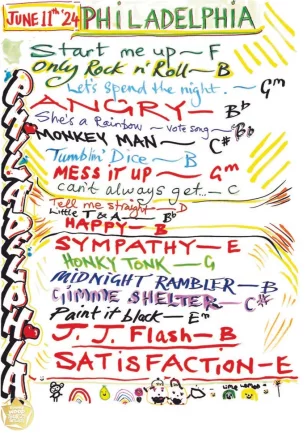 JUNE 11th '24 PHILADELPHIA
Start me up — F
Only Rock n' Roll — B
Let's spend the night. — Gm
ANGRY — Bb
She's a Rainbow ~ vote song ~ Bb
MONKEY MAN — C#
Tumblin' Dice — B
MESS IT UP — Gm
can't always get... — C
Tell me straight — D
Little T & A — Bb
HAPPY — B
SYMPATHY — E
HONKY TONK — G
MIDNIGHT RAMBLER — B
GIMME SHELTER — C#
Paint it black — Em
J.J. Flash — B
SATISFACTION — E
PHILADELPHIA